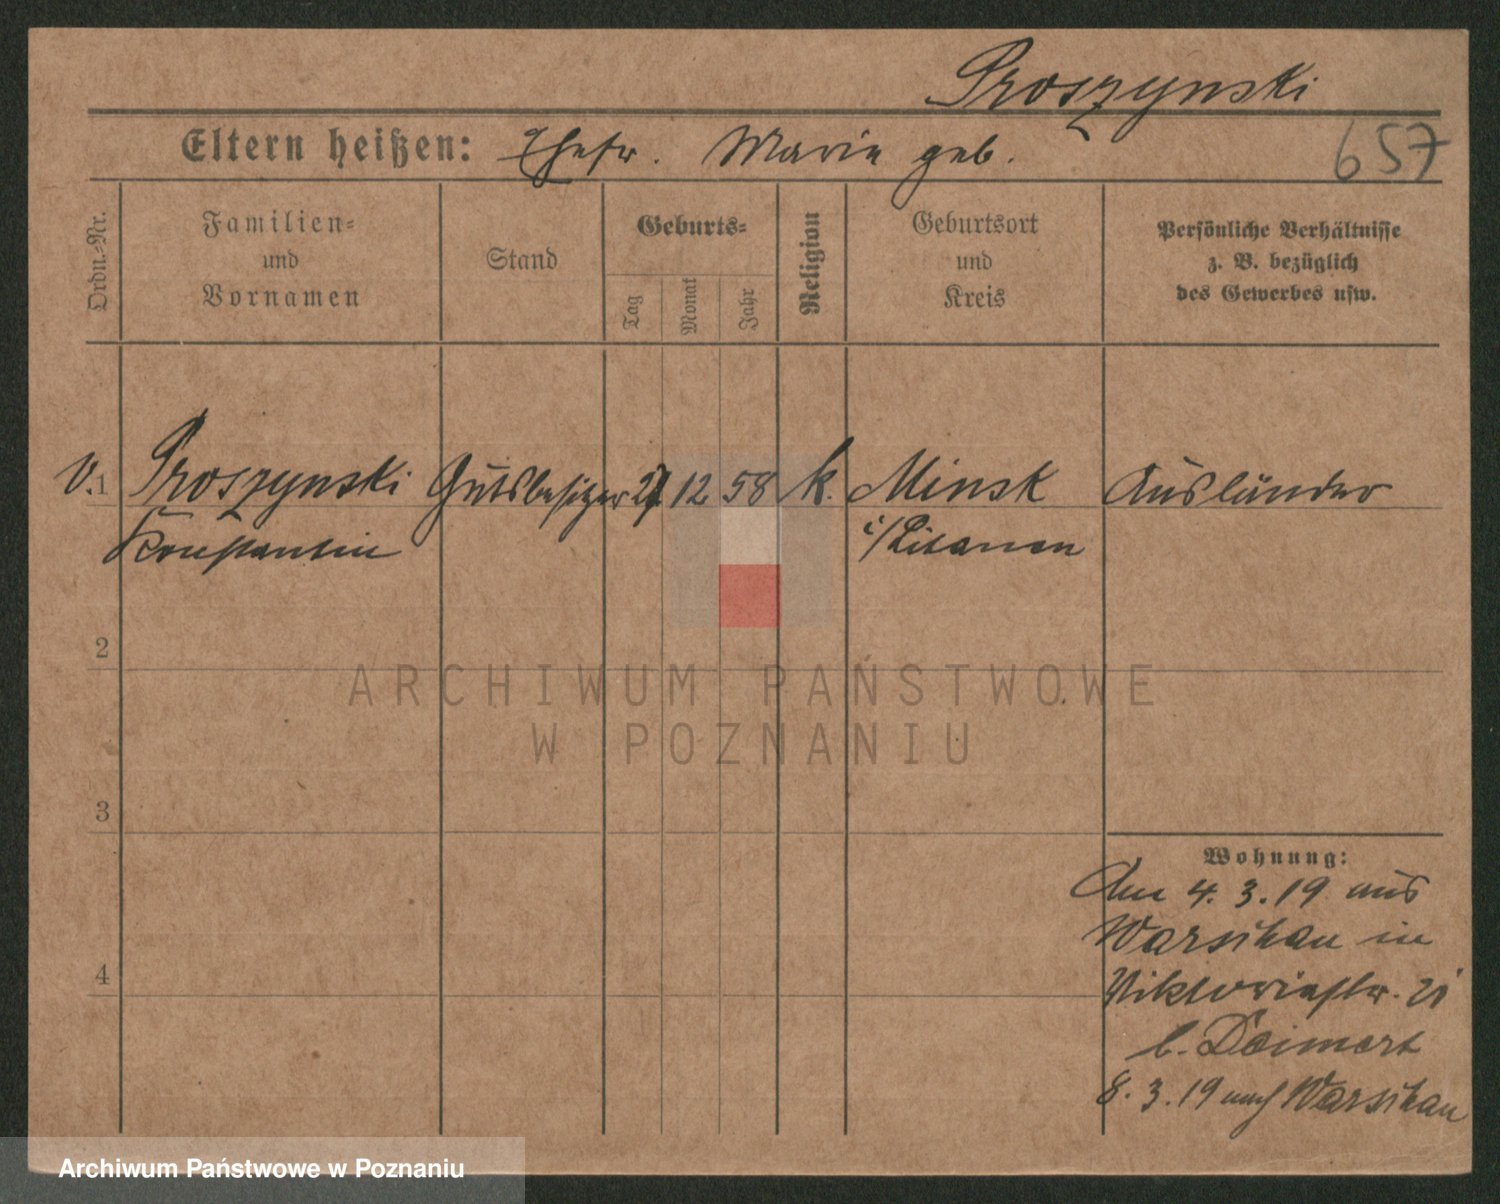 Proszynski
Eltern heißen: Ehefr. Marie geb.
657
Ordn.-Nr.
Familien-
und
Vornamen
Stand
Geburts-
Tag
Monat
Jahr
Religion
Geburtsort
und
Kreis
Persönliche Verhältnisse
z. B. bezüglich
des Gewerbes usw.
V. 1 Proszynski Gutsbesitzer 27 12 58 k. Minsk Ausländer
Konstantin i/Litauen
2
ARCHIWUM PAŃSTWOWE
W POZNANIU
3
Wohnung:
Am 4. 3. 19 aus
Warschau in
4
Viktoriastr. 21
b. Deimert
8. 3. 19 nach Warschau
Archiwum Państwowe w Poznaniu